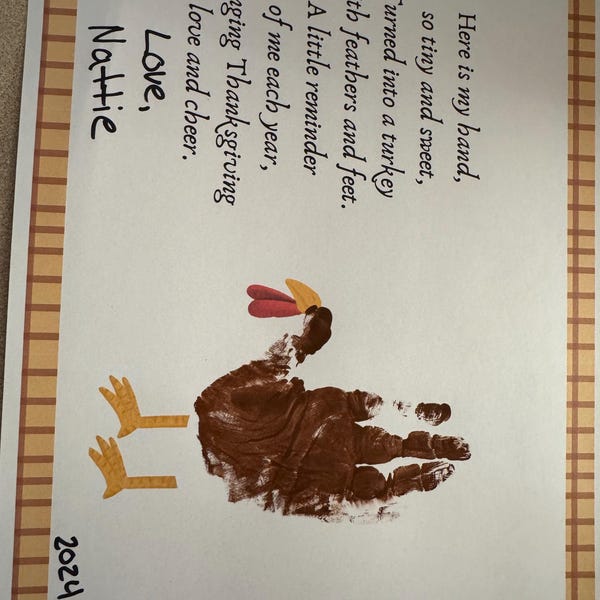 Here is my hand,
so tiny and sweet,
Turned into a turkey
th feathers and feet.
A little reminder
of me each year,
nging Thanksgiving
love and cheer.
Love,
Nattie
2024